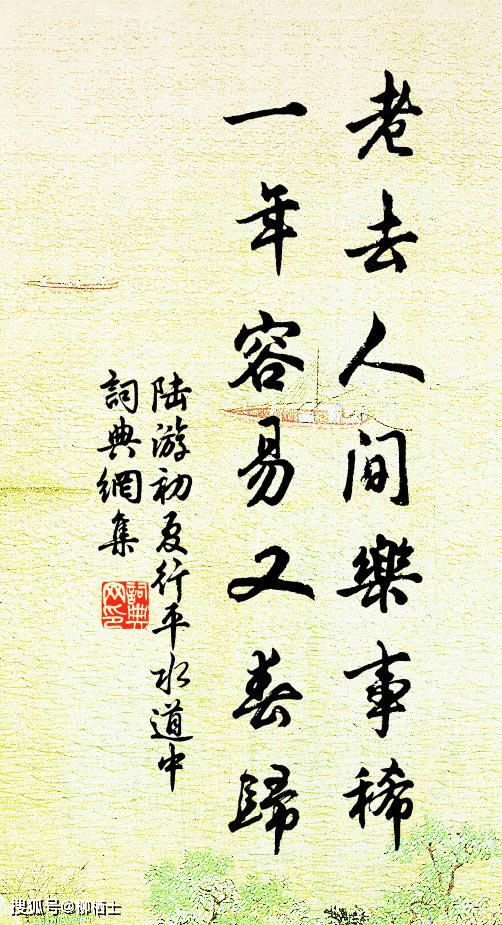 老去人间樂事稀
一年容易又春歸
陆游初夏行平水道中
詞典網集
詞典网印
搜狐号@柳栖士